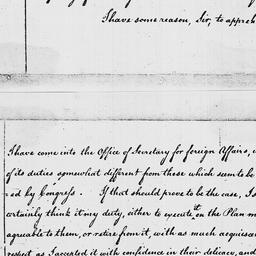 I have some reason, Sir, to appreh
I have come into the Office of Secretary for foreign Affairs, u
of its duties somewhat different from those which seem to be
ed by Congress. If that should prove to be the case, I s
certainly think it my duty, either to execute it on the Plan m
agreeable to them, or retire from it, with as much acquiesc
respect as I accepted it with confidence in their delicacy, and